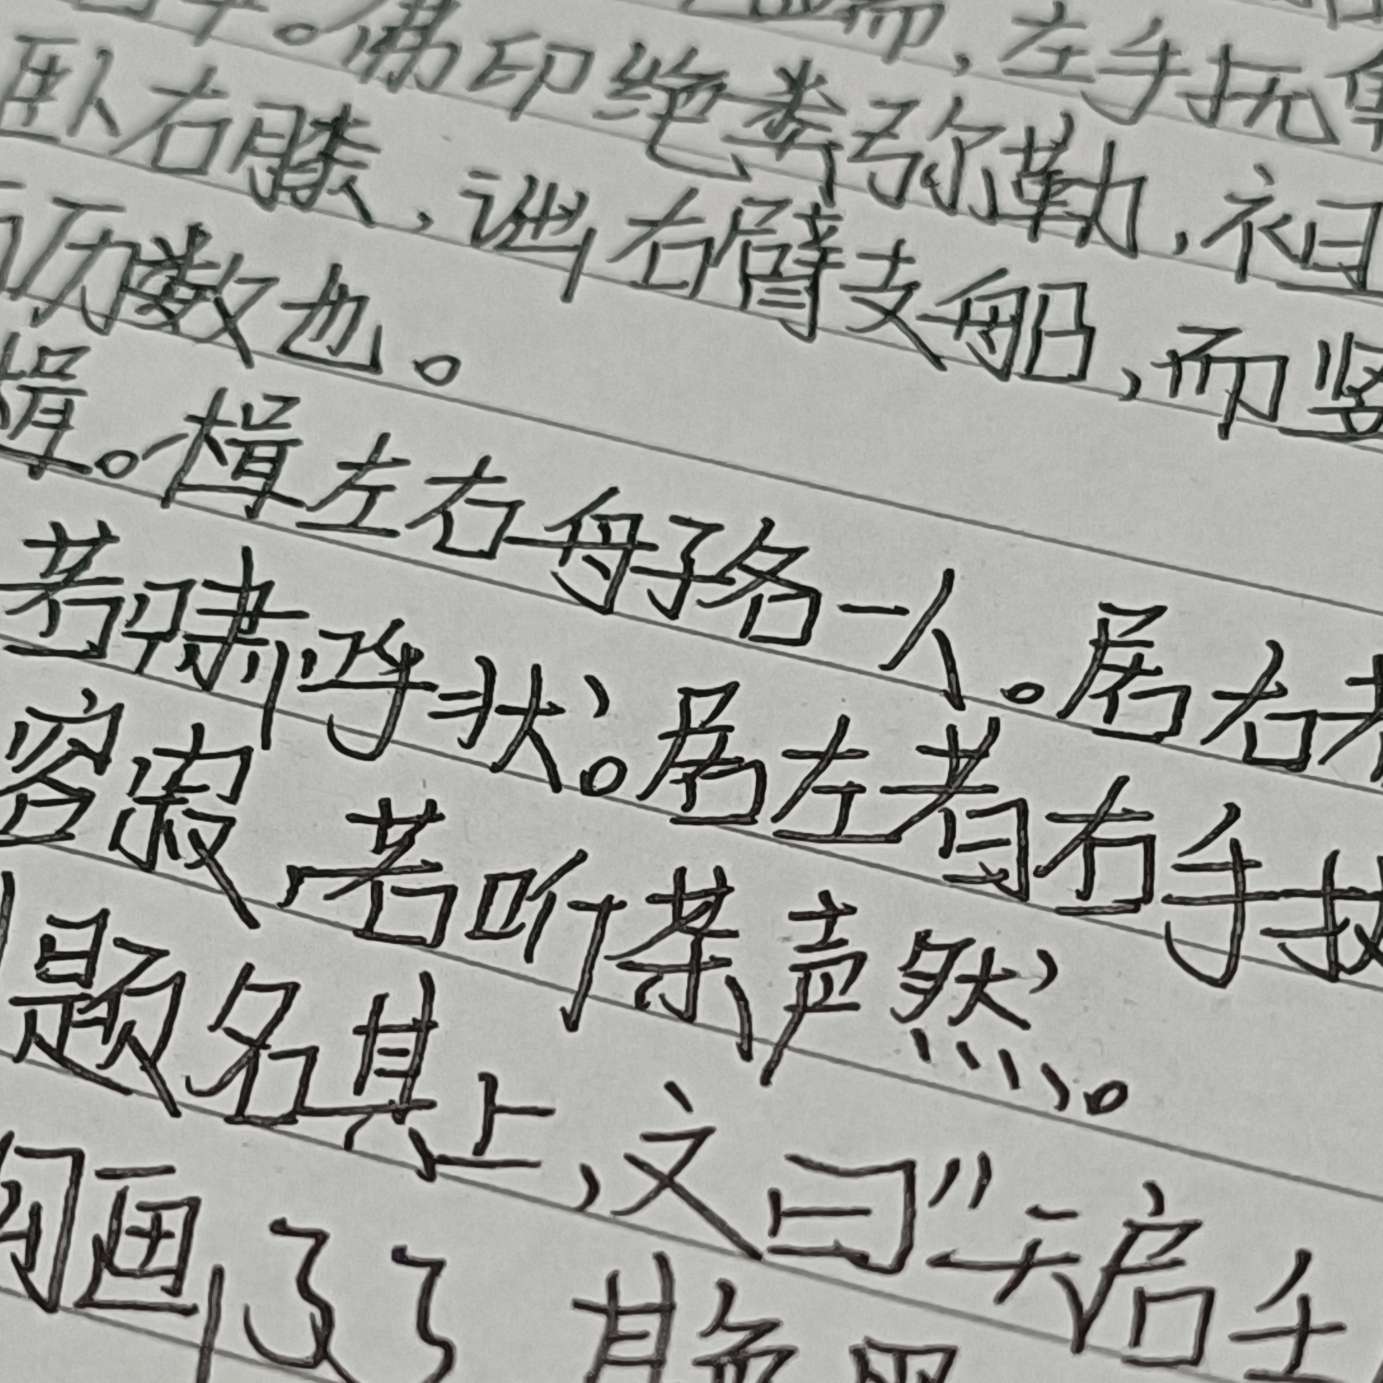 而,左手抚
。佛印绝类弥勒,袒
卧右膝,诎右臂支船,而竖
历数也。
楫。楫左右舟子各一人。居右者
若啸呼状。居左者右手执
容寂,若听茶声然。
题名其上,文曰“天启壬
钩画了了 其色墨